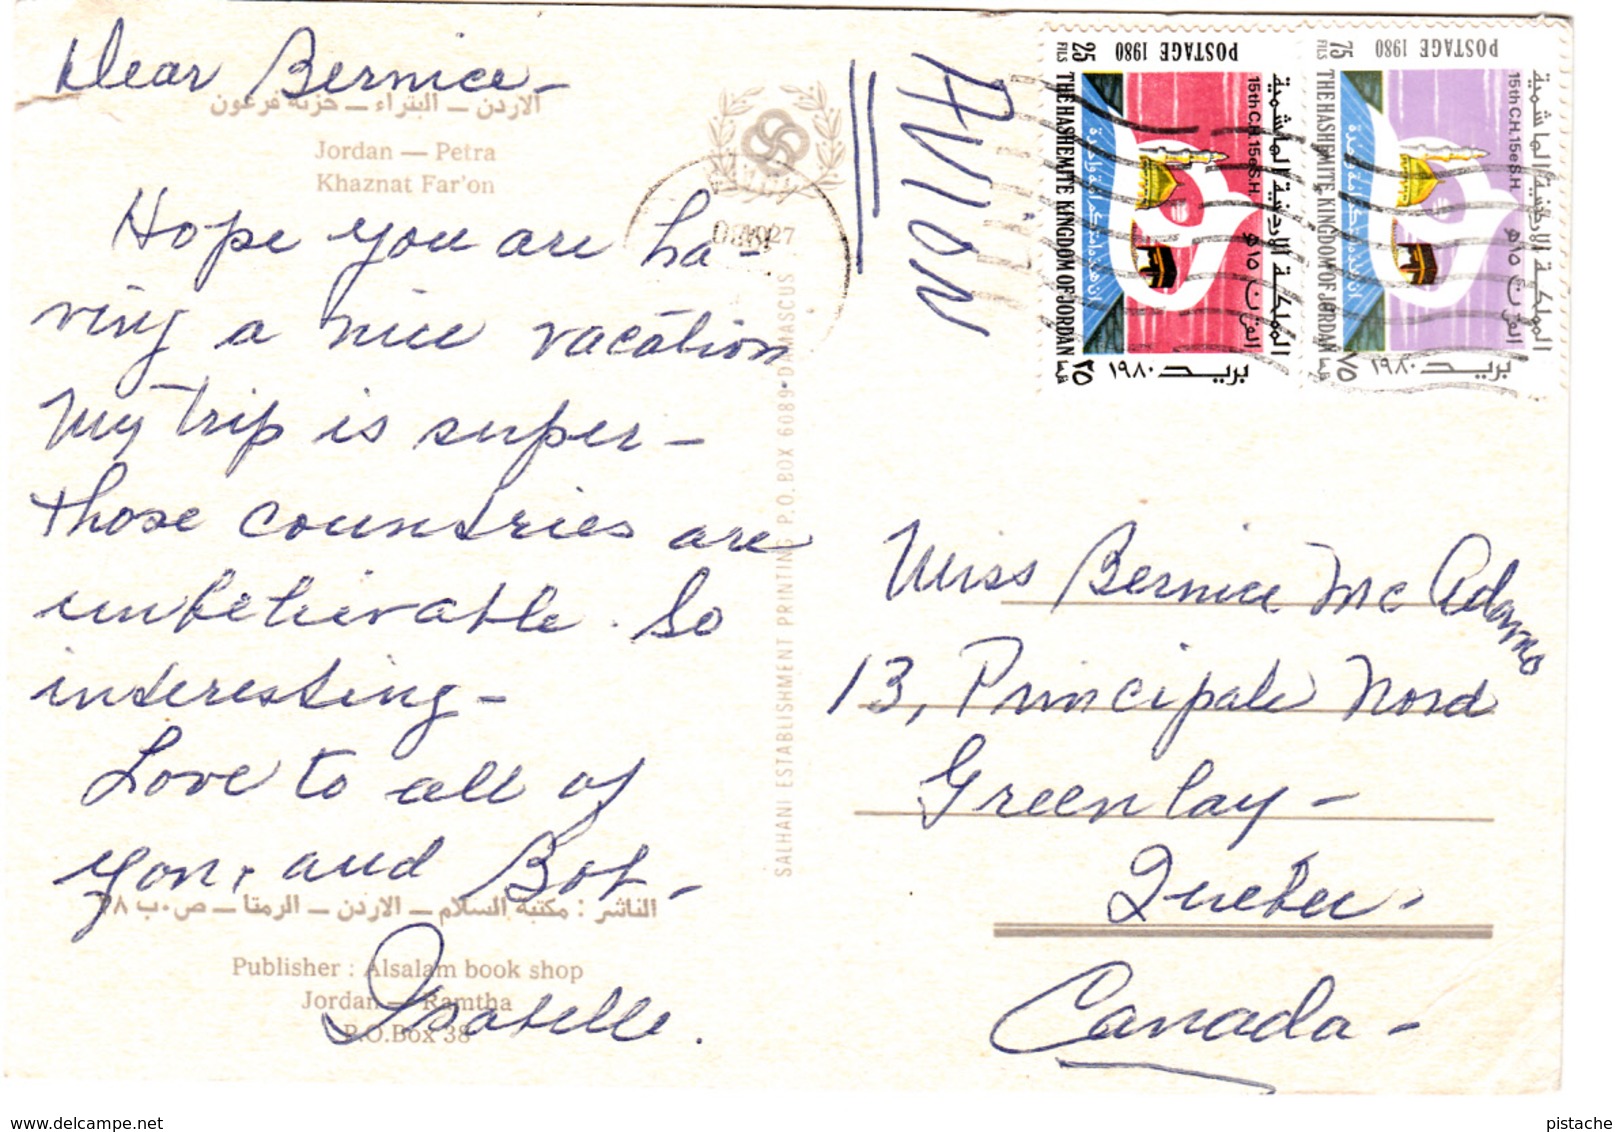 Dear Bernice -
الاردن — البتراء — خزنة فرعون
Jordan — Petra
Khaznat Far'on
Hope you are ha-
ving a nice vacation
My trip is super -
those countries are
unbelievable. So
interesting -
Love to all of
you, and Bob -
الناشر : مكتبة السلام — الاردن — الرمثا — ص.ب ٣٨
Publisher : Alsalam book shop
Jordan — Ramtha
P.O.Box 38
Isabelle.
SALHANI ESTABLISHMENT PRINTING P.O.BOX 6089 • DAMASCUS
AVION
25 FILS
POSTAGE 1980
THE HASHEMITE KINGDOM OF JORDAN
15th C.H. 15e S.H.
المملكة الاردنية الهاشمية
بريد ١٩٨٠
٢٥
75 FILS
POSTAGE 1980
THE HASHEMITE KINGDOM OF JORDAN
15th C.H. 15e S.H.
المملكة الاردنية الهاشمية
بريد ١٩٨٠
٧٥
Miss Bernice Mc Adams
13, Principale Nord
Greenlay -
Quebec.
Canada -
www.delcampe.net
pistache